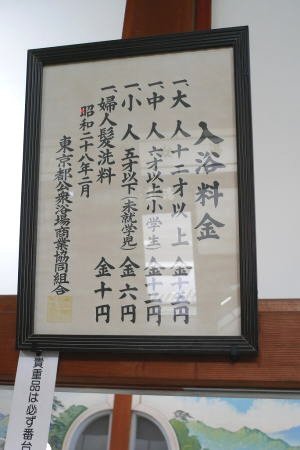 入浴料金
一、大人 十二才以上 金十五円
一、中人 六才以上(小学生) 金十二円
一、小人 五才以下(未就学児) 金六円
一、婦人髪洗料 金十円
昭和二十八年二月
東京都公衆浴場商業協同組合
貴重品は必ず番台